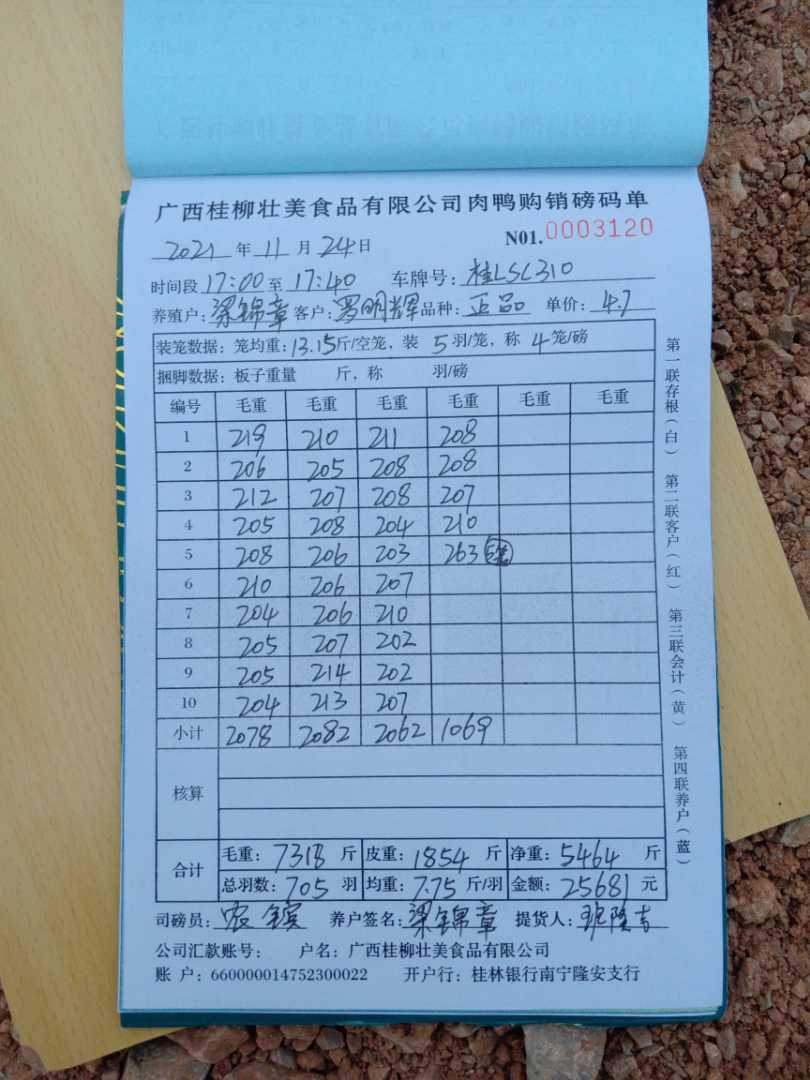 广西桂柳壮美食品有限公司肉鸭购销磅码单
2021 年 11 月 24 日 N01.0003120
时间段 17:00 至 17:40 车牌号: 桂LSC310
养殖户: 梁锦章 客户: 罗明辉 品种: 正品 单价: 4.7
装笼数据: 笼均重: 13.15 斤/空笼, 装 5 羽/笼, 称 4 笼/磅
捆脚数据: 板子重量 斤, 称 羽/磅
编号 毛重 毛重 毛重 毛重 毛重 毛重
1 219 210 211 208
2 206 205 208 208
3 212 207 208 207
4 205 208 204 210
5 208 206 203 263
6 210 206 207
7 204 206 210
8 205 207 202
9 205 214 202
10 204 213 207
小计 2078 2082 2062 1069
核算
合计 毛重: 7318 斤 皮重: 1854 斤 净重: 5464 斤
总羽数: 705 羽 均重: 7.75 斤/羽 金额: 25681 元
司磅员: 农 养户签名: 梁锦章 提货人: 班隆吉
公司汇款账号: 户名: 广西桂柳壮美食品有限公司
账 户: 660000014752300022 开户行: 桂林银行南宁隆安支行
第一联存根(白) 第二联客户(红) 第三联会计(黄) 第四联养户(蓝)